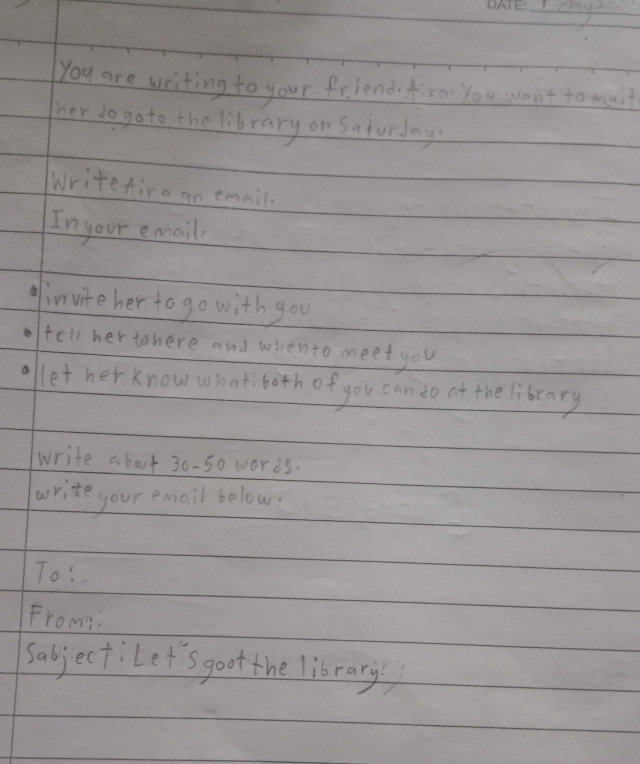 DATE: 1 May
You are writing to your friend. Aira. You want to
her to go to the library on Saturday.
Write Aira an email.
In your email,
• invite her to go with you
• tell her where and when to meet you
• let her know what both of you can do at the library
write about 30-50 words.
write your email below.
To:
From:
Sabject: Let's goot the library!